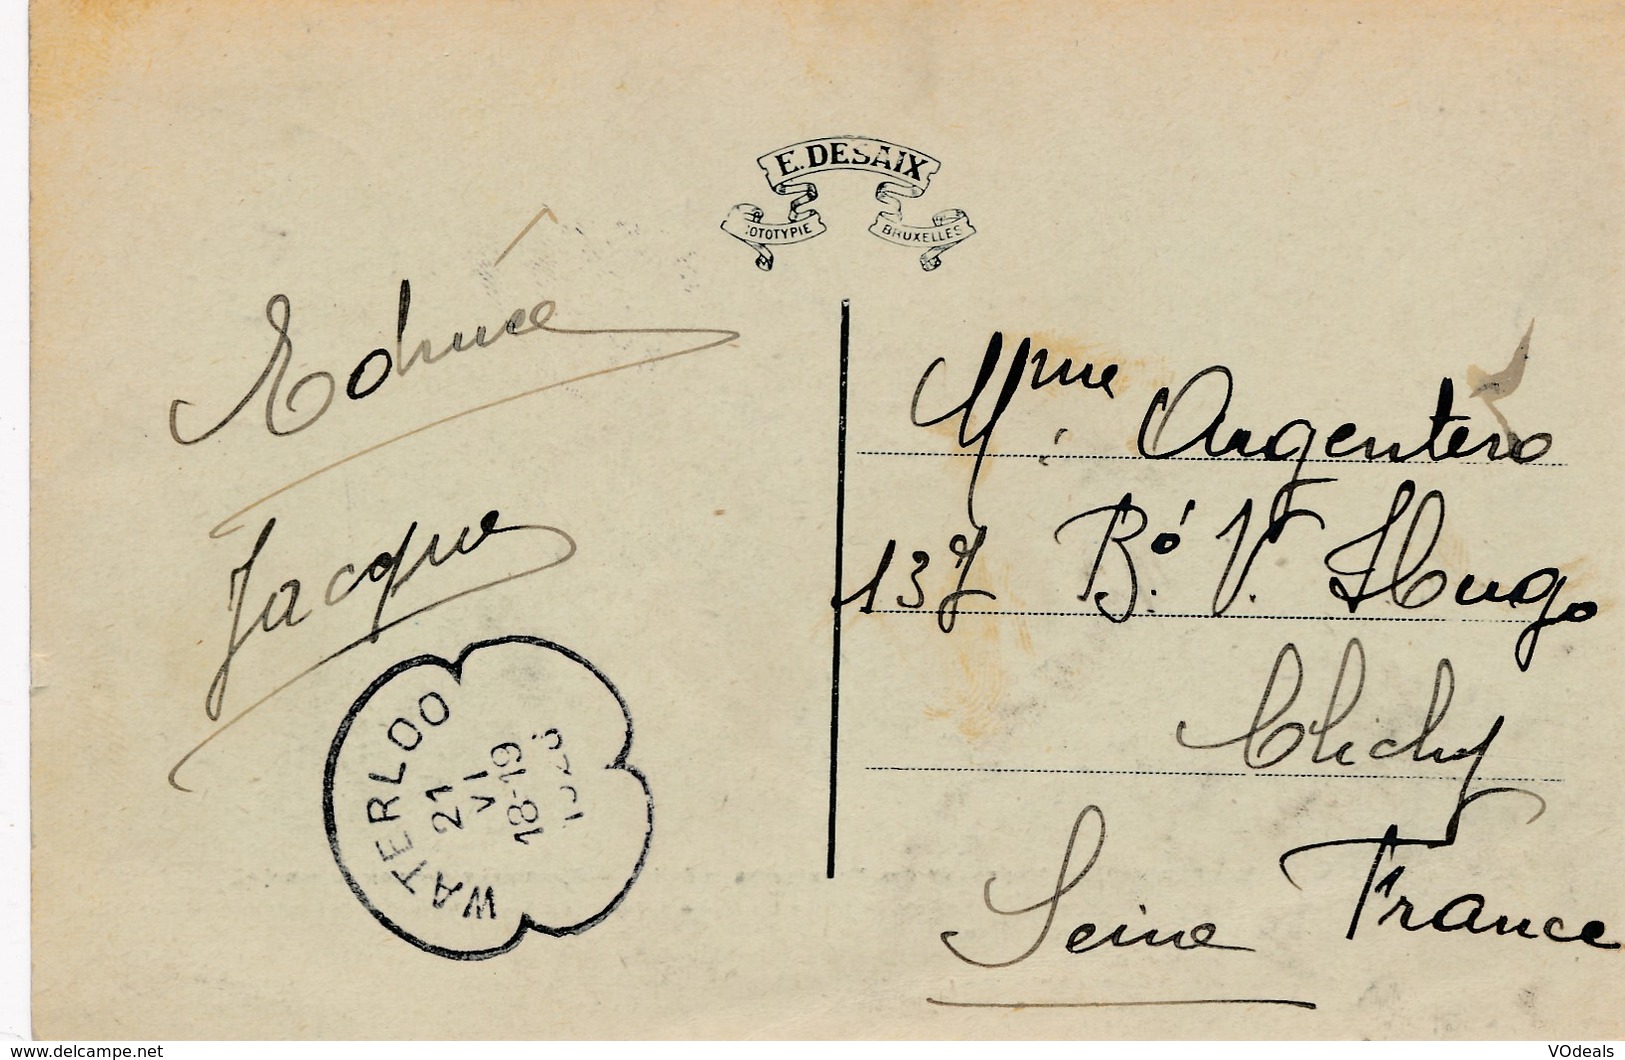 E. DESAIX
OTOTYPIE BRUXELLES
Edmée
Jacques
WATERLOO
21
VI
18-19
Mme Argentero
137 Bd. V. Hugo
Clichy
Seine France
www.delcampe.net
VOdeals